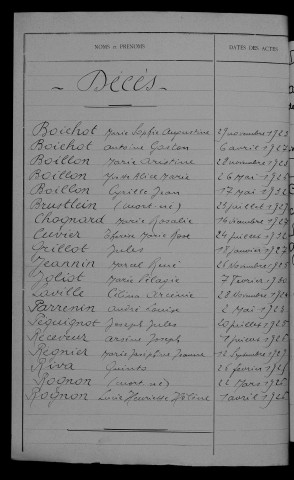 NOMS et PRÉNOMS DATES DES ACTES
- Décès -
Boichot Marie Sophie Augustine 27 novembre 1923
Boichot Antoine Gaston 6 avril 1927
Boillon Marie Aristine 28 novembre 1925
Boillon Alice Marie 26 Mai 1926
Boillon Cyrille Jean 17 mai 1932
Brustlein (mort né) 21 juillet 1927
Chognard Marie Rosalie 16 décembre
Cuvier Marie Rose 24 juillet 1932
Grillot Jules 18 janvier 1927
Jeannin Marcel René 26 novembre 1923
Joliot Marie Pélagie 7 février 1930
Laville Célina Arcénie 28 novembre
Parrenin André Louise 2 mai 1928
Péquignot Joseph Jules 20 juillet 1925
Receveur Arsène Joseph 1 1926
Regnier Marie Joséphine Jeanne 12 septembre 1927
Riva Quinto 26 février 1928
Rognon (mort né) 22 mars 1925
Rognon Lucie Henriette Hélène 1 avril 1926